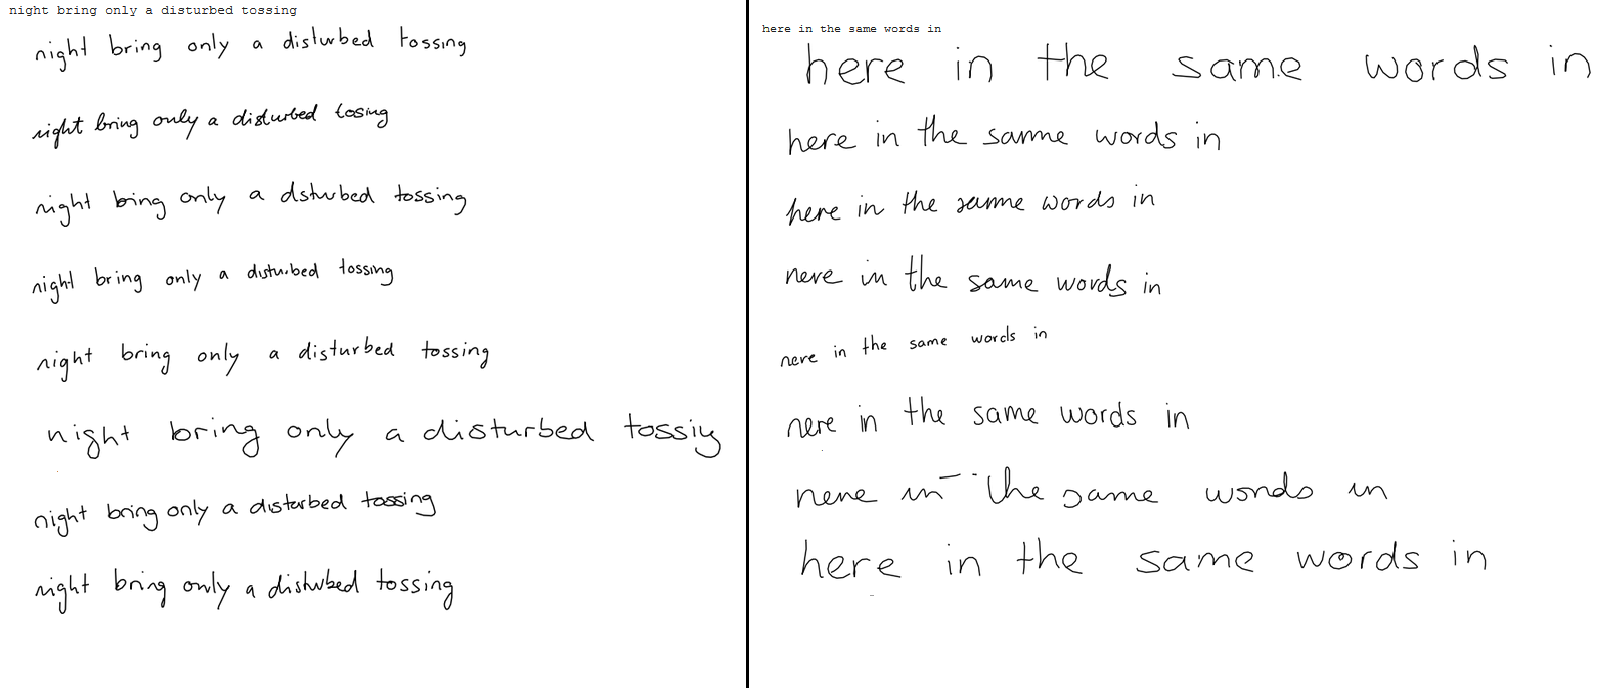 night bring only a disturbed tossing
night bring only a disturbed tossing
night bring only a disturbed tosing
night bring only a dsturbed tossing
night bring only a disturbed tossing
night bring only a disturbed tossing
night bring only a disturbed tossiy
night bring only a disturbed tossing
night bring only a disturbed tossing
here in the same words in
here in the same words in
here in the sanme words in
here in the sanme words in
nere in the same words in
nere in the same words in
nere in the same words in
nene in the same words in
here in the same words in